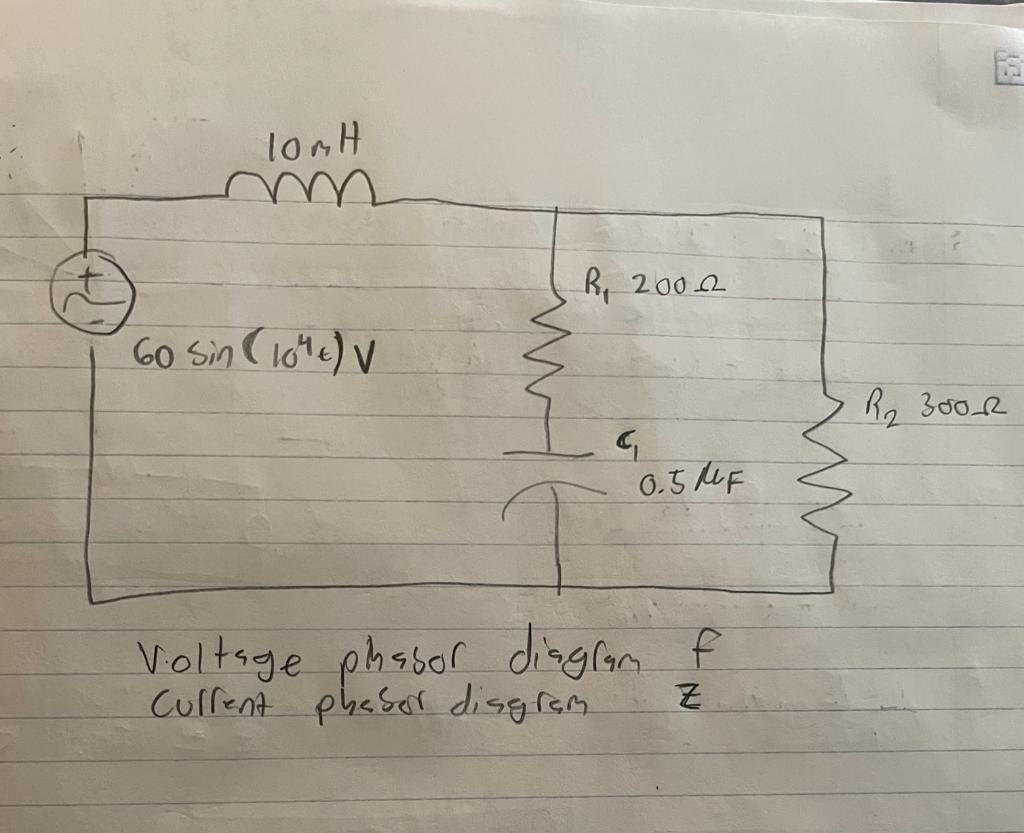 10mH
R₁ 200Ω
+
-
60 sin(10⁴t) V
R₂ 300Ω
C₁
0.5 μF
Voltage phasor diagram f
Current phasor diagram Z